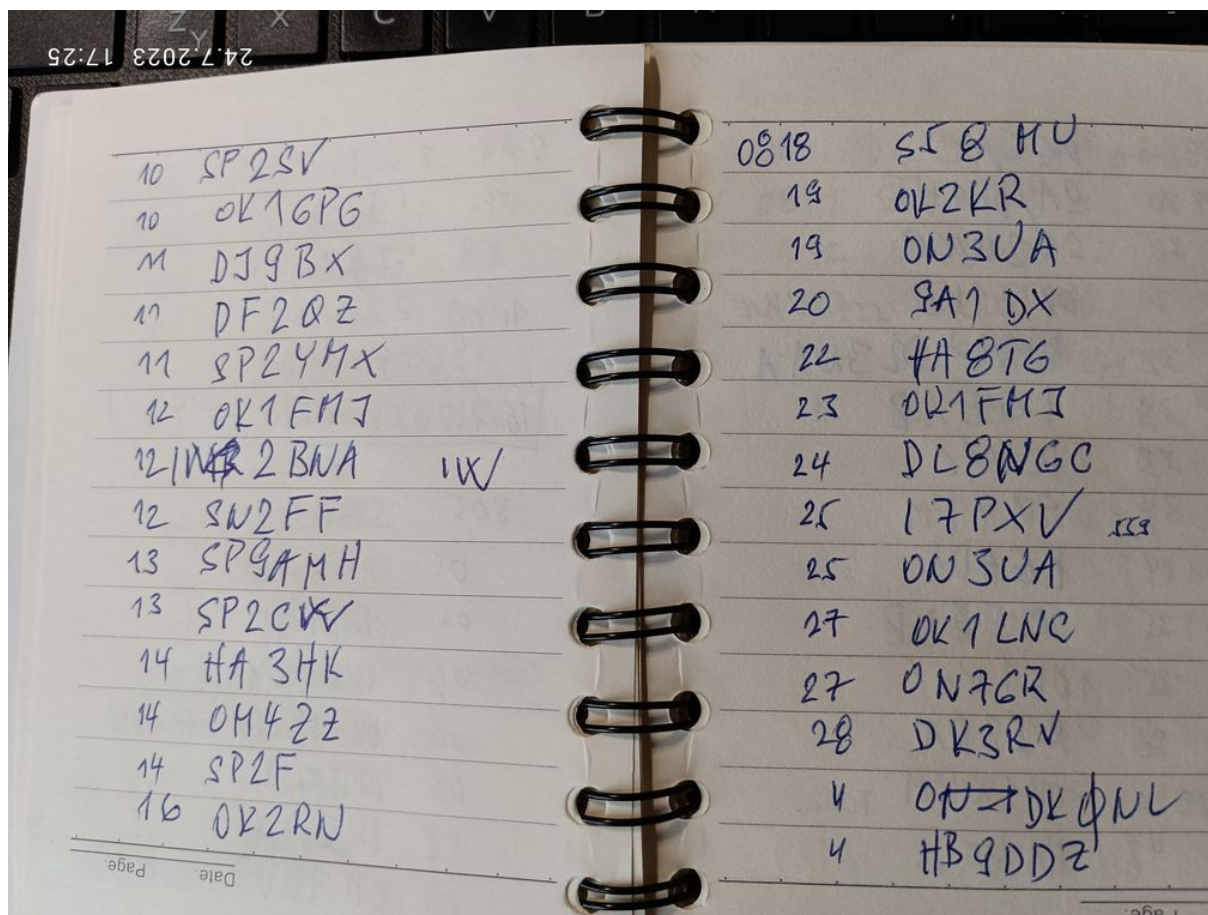 24.7.2023 17:25
10 SP2SV
10 OK1GPG
11 DJ9BX
11 DF2QZ
11 SP2YMX
12 OK1FMJ
12 2BNA
12 SN2FF
13 SP9AMH
13 SP2CW
14 HA3HK
14 OM4ZZ
14 SP2F
16 OK2RN
Date:
Page:
0818 S58MU
19 OK2KR
19 ON3UA
20 9A1DX
22 HA8TG
23 OK1FMJ
24 DL8NGC
25 I7PXV 559
25 ON3UA
27 OK1LNC
27 ON7GR
28 DK3RV
4 DKØNL
4 HB9DDZ